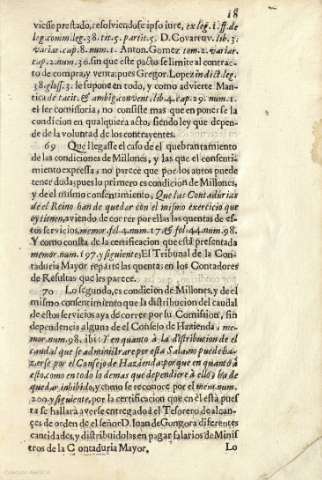 18
viesse prestado, resolviendose ipso iure, ex leg. 1. ff. de
leg. comm. leg. 38. tit. 5. partit. 5. D. Covarruv. lib. 3.
variar. cap. 8. num. 1. Anton. Gomez tom. 2. variar.
cap. 2. num. 36. sin que este pacto se limite al contrac-
to de compra, y venta, pues Gregor. Lopez in dict. leg.
38. gloss. 3. le supone en todo, y como advierte Man-
tica de tacit. & ambig. convent. lib. 4. cap. 29. num. 1.
el ser comissoria, no consiste mas que en ponerse la
condicion en qualquiera acto, siendo ley que depen-
de de la voluntad de los contrayentes.
69 Que llegasse el caso de el quebrantamiento
de las condiciones de Millones, y las que el consenti-
miento expressa, no parece que por los autos puede
tener duda, pues lo primero es condicion de Millones,
y de el mismo consentimiento, Que las Contadurias
de el Reino han de quedar con el mismo exercicio que
oy tienen, aviendo de correr por ellas las quentas de es-
tos servicios, memor. fol. 4. num. 17. & fol. 44. num. 98.
Y como consta de la certificacion que està presentada
memor. num. 197. y siguientes, El Tribunal de la Con-
taduria Mayor reparte las quentas en los Contadores
de Resultas que les parece.
70 Lo segundo, es condicion de Millones, y de el
mismo consentimiento que la distribucion del caudal
de estos servicios aya de correr por su Comision, sin
dependencia alguna de el Consejo de Hazienda, me-
mor. num. 98. ibi: Y en quanto à la distribucion de el
caudal que se administrare por esta Sala, no puede ha-
zerse por el Consejo de Hazienda: porque en quanto à
esto, como en todo lo demas que dependiere à ello, ha de
quedar inhibido, y como se reconoce por el mem. num.
200. y siguiente, por la certificacion que en èl està pues
ta se hallarà averse entregado à el Tesorero de alcan-
çes de orden de el señor D. Ioan de Gongora diferentes
cantidades, y distribuidolas en pagar salarios de Minis
tros de la Contaduria Mayor. Lo